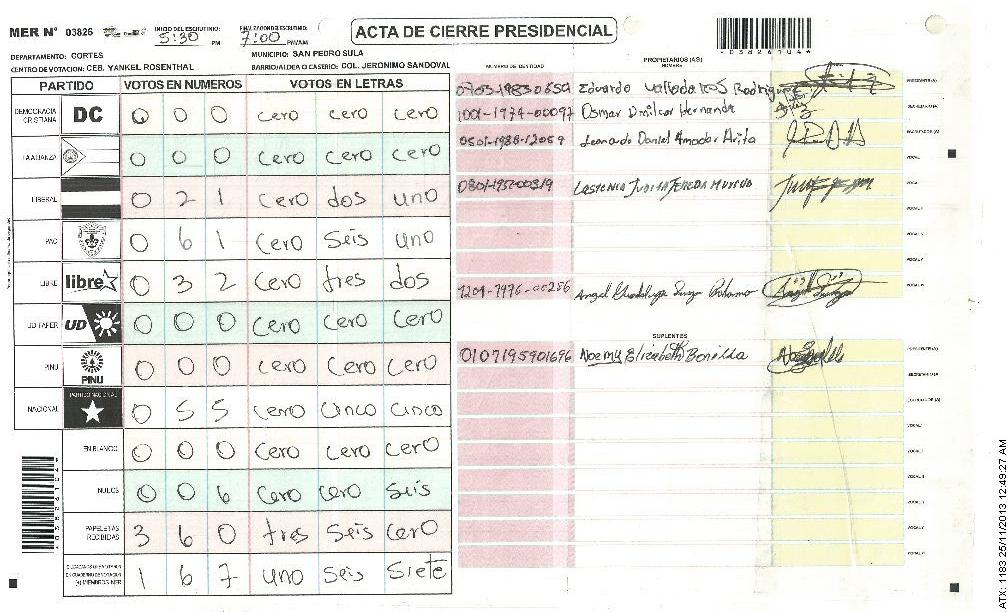 MER N° 03826
INICIO DEL ESCRUTINIO: 5:30 PM
FINALIZACION DEL ESCRUTINIO: 7:00 PM/AM
ACTA DE CIERRE PRESIDENCIAL
DEPARTAMENTO: CORTES
MUNICIPIO: SAN PEDRO SULA
CENTRO DE VOTACION: CEB. YANKEL ROSENTHAL
BARRIO/ALDEA O CASERIO: COL. JERONIMO SANDOVAL
PARTIDO VOTOS EN NUMEROS VOTOS EN LETRAS
DEMOCRACIA CRISTIANA DC 0 0 0 cero cero cero
LA ALIANZA 0 0 0 cero cero cero
LIBERAL 0 2 1 cero dos uno
PAC 0 6 1 cero seis uno
LIBRE libre 0 3 2 cero tres dos
UD FAPER UD 0 0 0 cero cero cero
PINU PINU 0 0 0 cero cero cero
NACIONAL PARTIDO NACIONAL 0 5 5 cero cinco cinco
EN BLANCO 0 0 0 cero cero cero
NULOS 0 0 6 cero cero seis
PAPELETAS RECIBIDAS 3 6 0 tres seis cero
1 6 7 uno seis siete
NUMERO DE IDENTIDAD
PROPIETARIOS (AS)
NOMBRE
Eduardo Valladares Rodriguez PRESIDENTE (A)
1001-1974-00097 Osmar Hernandez SECRETARIO (A)
0501-1988-12059 Leonardo Daniel Amador Arita ESCRUTADOR (A)
VOCAL I
VOCAL
VOCAL
VOCAL V
VOCAL
VOCAL
Angel Guadalupe
SUPLENTES
0107195901696 Noemy Elizabeth Bonilla PRESIDENTE (A)
SECRETARIO (A)
ESCRUTADOR (A)
VOCAL I
VOCAL
VOCAL
VOCAL
VOCAL V
VOCAL
ATX: 1183 25/11/2013 12:49:27 AM